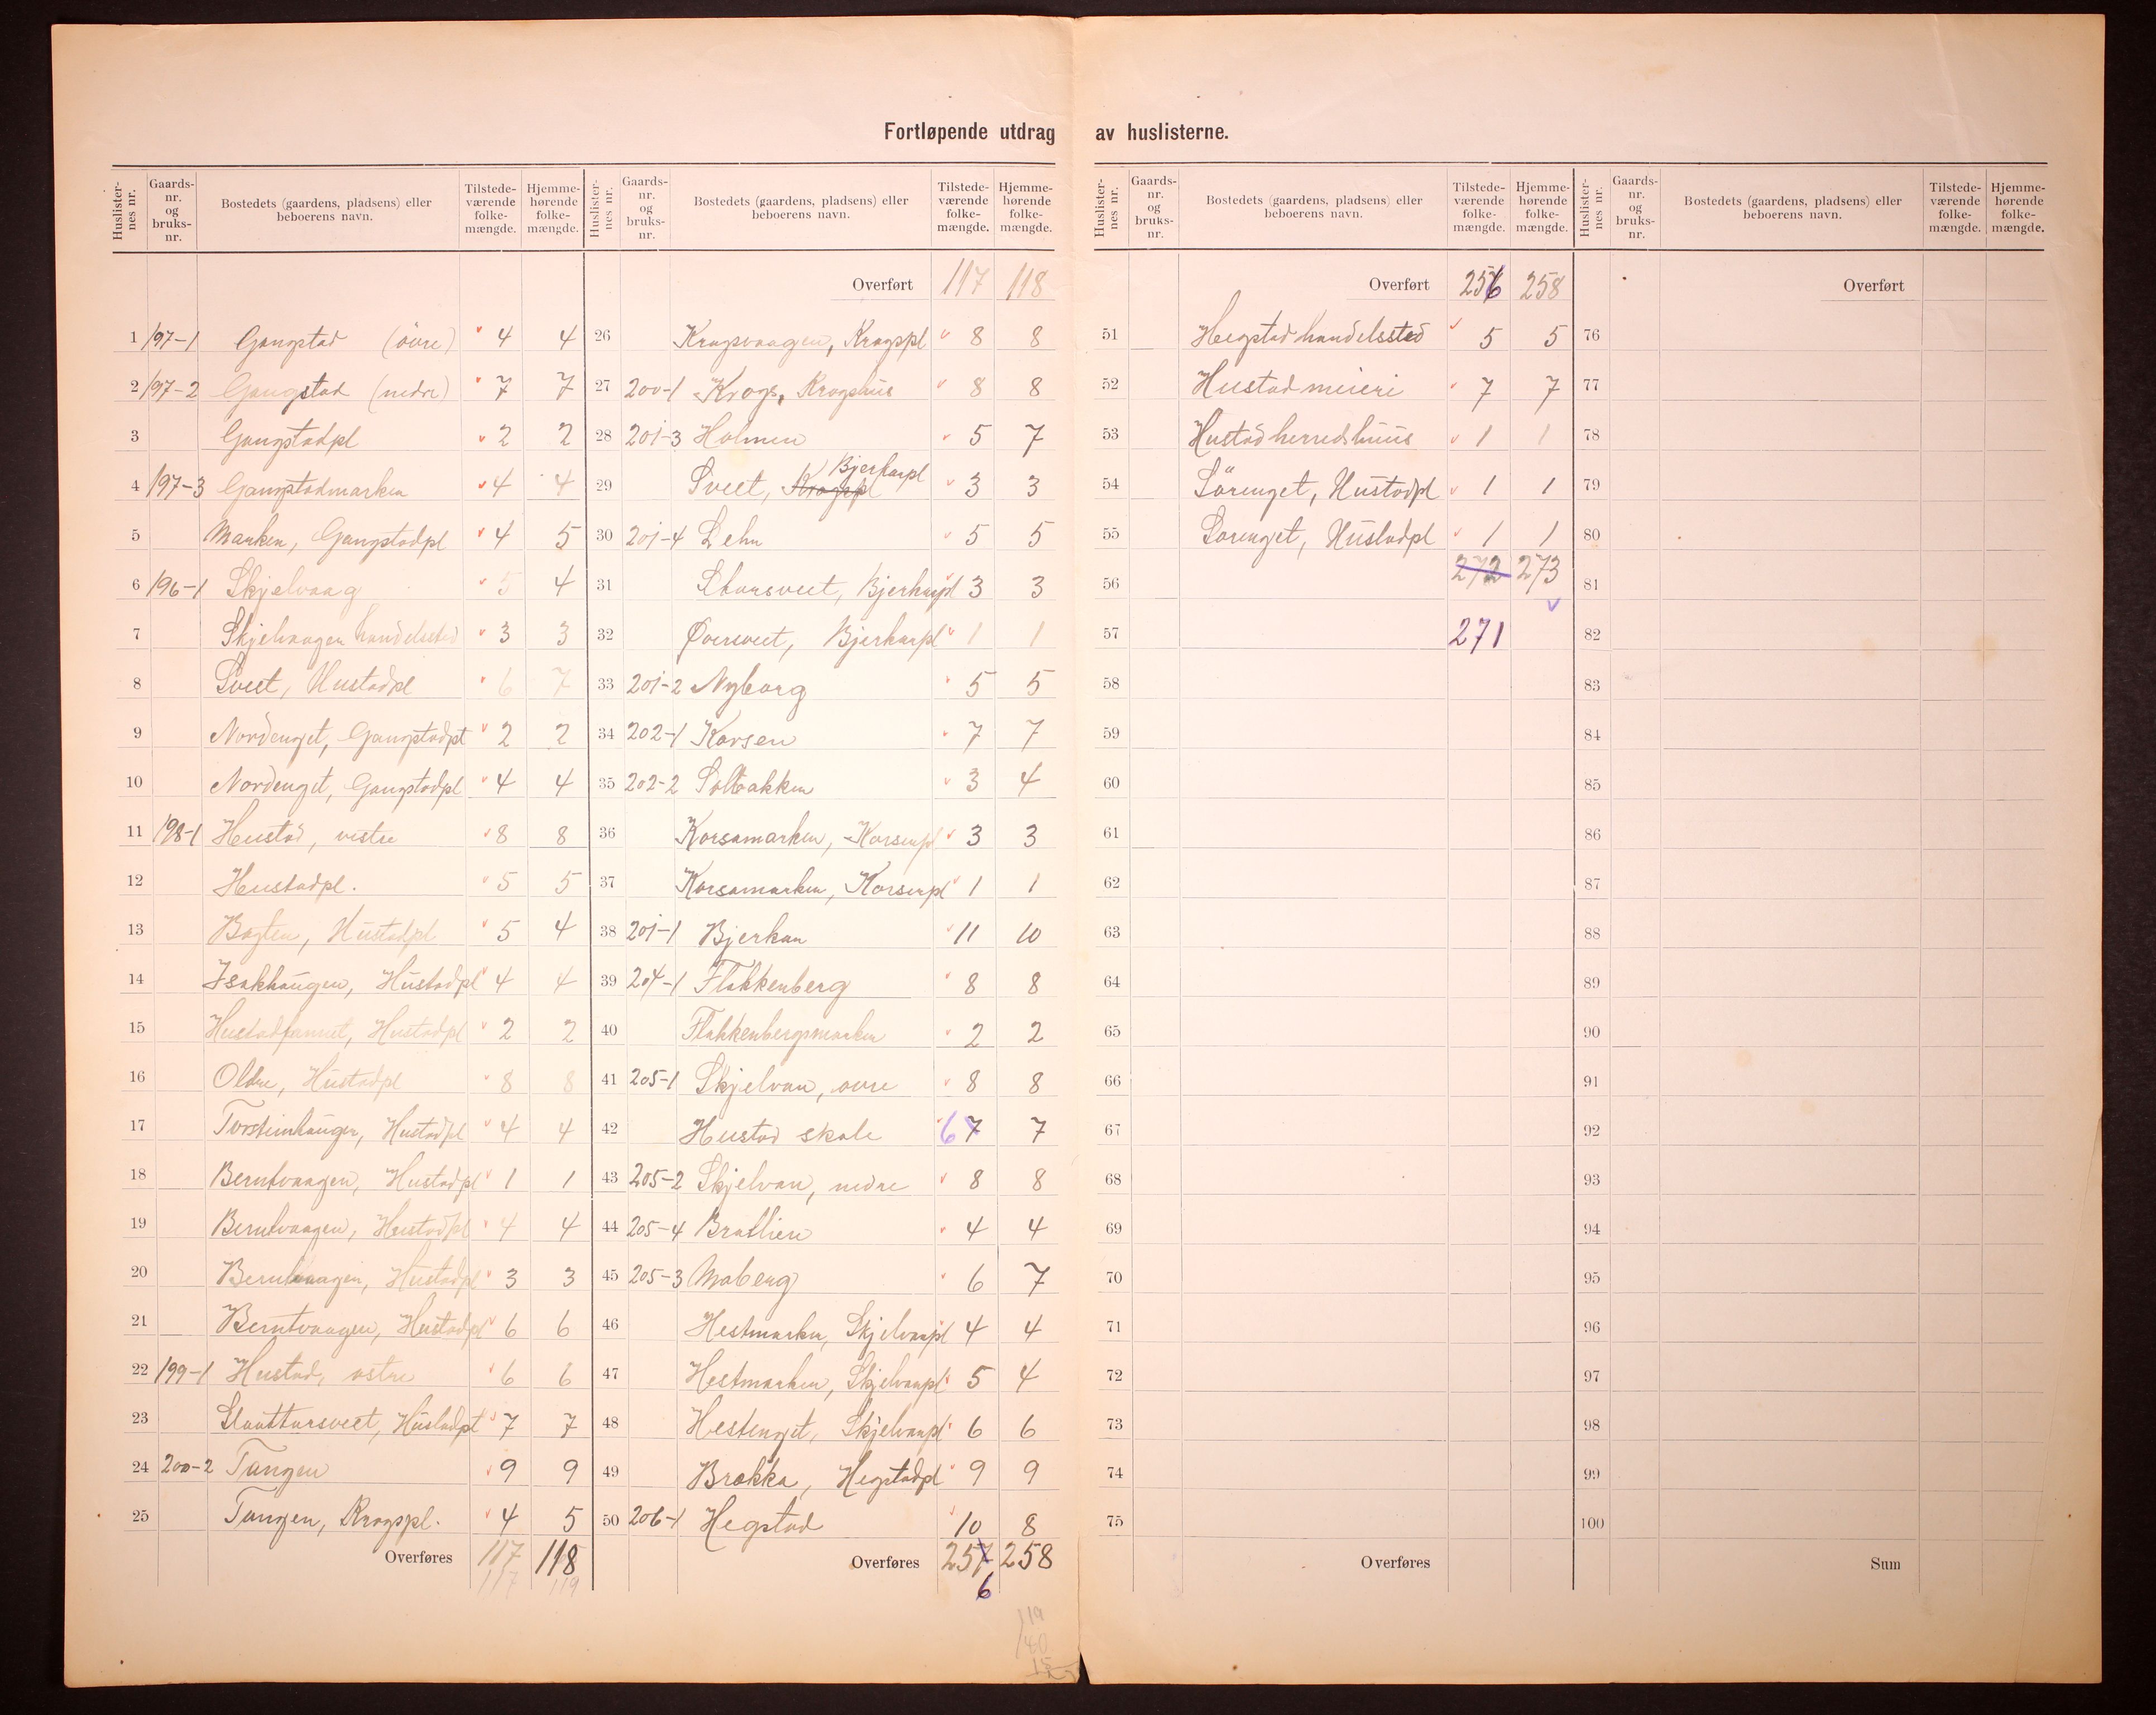 Fortløpende utdrag av huslisterne.
Huslister-nes nr. Gaards-nr. og bruks-nr. Bostedets (gaardens, pladsens) eller beboerens navn. Tilstede-værende folke-mængde. Hjemme-hørende folke-mængde.
1 197-1 Gangstad (övre) 4 4
2 197-2 Gangstad (nedre) 7 7
3 Gangstadpl 2 2
4 197-3 Gangstadmarken 4 4
5 Marken, Gangstadpl 4 5
6 196-1 Skjelvaag 5 4
7 Skjelvaagen handelssted 3 3
8 Sveet, Hustadpl 6 7
9 Nordenget, Gangstadpl 2 2
10 Nordenget, Gangstadpl 4 4
11 198-1 Hustad, vestre 8 8
12 Hustadpl. 5 5
13 Bagten, Hustadpl 5 4
14 Isakhaugen, Hustadpl 4 4
15 Hustadtunnet, Hustadpl 2 2
16 Oldre, Hustadpl 8 8
17 Torsteinhaugen, Hustadpl 4 4
18 Berntvaagen, Hustadpl 1 1
19 Berntvaagen, Hustadpl 4 4
20 Berntvaagen, Hustadpl 3 3
21 Berntvaagen, Hustadpl 6 6
22 199-1 Hustad, østre 6 6
23 Slaattarsveet, Hustadpl 7 7
24 200-2 Tangen 9 9
25 Tangen, Krogspl. 4 5
Overføres 117 118
117 119
Huslister-nes nr. Gaards-nr. og bruks-nr. Bostedets (gaardens, pladsens) eller beboerens navn. Tilstede-værende folke-mængde. Hjemme-hørende folke-mængde.
Overført 117 118
26 Krogsvaagen, Krogspl 8 8
27 200-1 Krogs, Krogshus 8 8
28 201-3 Holmen 5 7
29 Sveet, Krogspl Bjerkanpl 3 3
30 201-4 Lehn 5 5
31 Storsveet, Bjerkanpl 3 3
32 Øversveet, Bjerkanpl 1 1
33 201-2 Nyborg 5 5
34 202-1 Korsen 7 7
35 202-2 Solbakken 3 4
36 Korsamarken, Korsenpl 3 3
37 Korsamarken, Korsenpl 1 1
38 201-1 Bjerkan 11 10
39 204-1 Flakkenberg 8 8
40 Flakkenbergsmarken 2 2
41 205-1 Skjelvan, øvre 8 8
42 Hustad skole 6 7 7
43 205-2 Skjelvan, nedre 8 8
44 205-4 Bratlien 4 4
45 205-3 Moberg 6 7
46 Hestmarken, Skjelvanpl 4 4
47 Hestmarken, Skjelvanpl 5 4
48 Hestenget, Skjelvanpl 6 6
49 Brekka, Hegstadpl 9 9
50 206-1 Hegstad 10 8
Overføres 257 258
6
119
140
15
Huslister-nes nr. Gaards-nr. og bruks-nr. Bostedets (gaardens, pladsens) eller beboerens navn. Tilstede-værende folke-mængde. Hjemme-hørende folke-mængde.
Overført 256 258
51 Hegstad handelssted 5 5
52 Hustad meieri 7 7
53 Hustad herredshuus 1 1
54 Sörenget, Hustadpl 1 1
55 Sörenget, Hustadpl 1 1
56 272 273
57 271
58
59
60
61
62
63
64
65
66
67
68
69
70
71
72
73
74
75
Overføres
Huslister-nes nr. Gaards-nr. og bruks-nr. Bostedets (gaardens, pladsens) eller beboerens navn. Tilstede-værende folke-mængde. Hjemme-hørende folke-mængde.
Overført
76
77
78
79
80
81
82
83
84
85
86
87
88
89
90
91
92
93
94
95
96
97
98
99
100
Sum